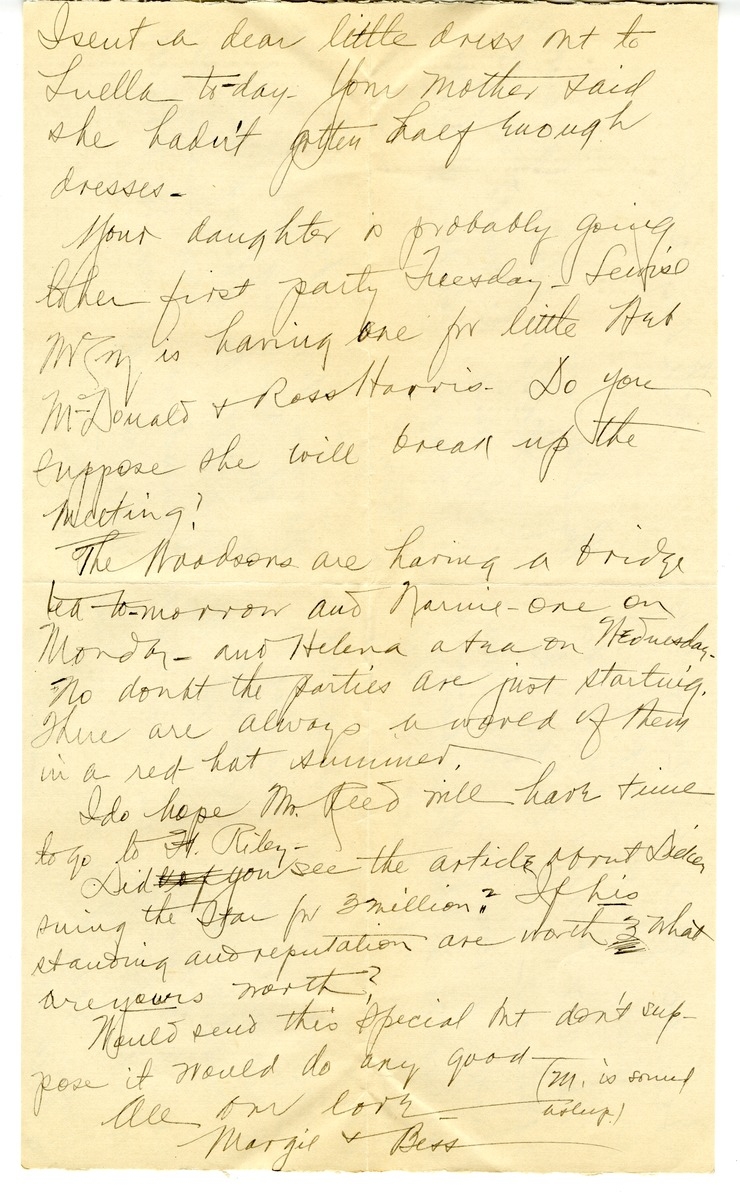 I sent a dear little dress out to
Luella to-day - Your mother said
she hadn't gotten half enough
dresses -
Your daughter is probably going
to her first party Tuesday - Louise
is having one for little Hub
McDonald & Ross Harris - Do you
suppose she will break up the
meeting?
The Woodsons are having a bridge
tea to-morrow and Narnie - one on
Monday - and Helena a tea on Wednesday -
No doubt the parties are just starting.
There are always a world of them
in a red hot summer.
I do hope Mr. Reed will have time
to go to Ft. Riley -
Did you see the article about
suing the Star for 3 million? If his
standing and reputation are worth 3 what
are yours worth?
Would send this Special but don't sup-
pose it would do any good -
(M. is sound
asleep.)
All our love -
Margie & Bess